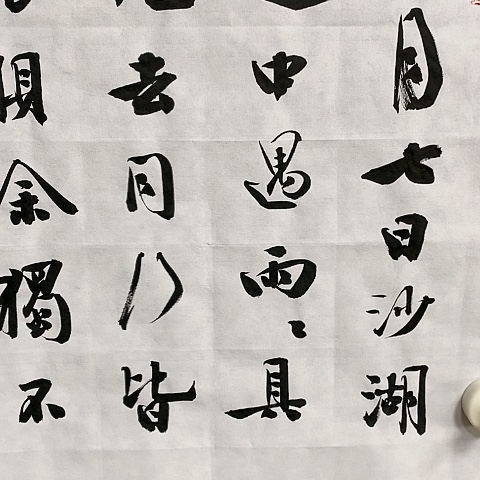 月七日沙湖
中遇雨〻具
去同行皆
狽余獨不